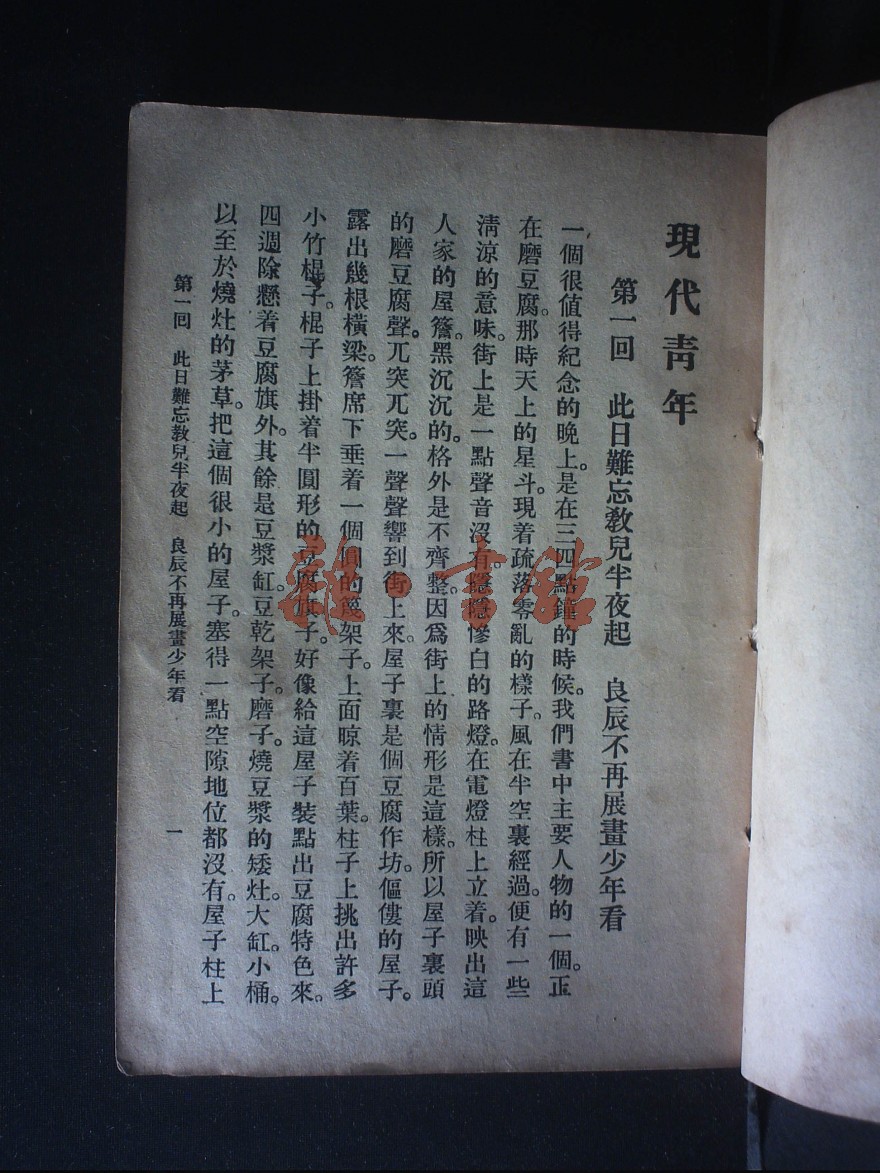 現代靑年
第一回　此日難忘敎兒半夜起　良辰不再展畫少年看
一個很値得紀念的晚上。是在三四點鐘的時候。我們書中主要人物的一個。正
在磨豆腐。那時天上的星斗。現着疏落零亂的樣子。風在半空裏經過。便有一些
淸涼的意味。街上是一點聲音沒有。隱隱慘白的路燈。在電燈柱上立着。映出這
人家的屋簷。黑沉沉的。格外是不齊整。因爲街上的情形是這樣。所以屋子裏頭
的磨豆腐聲。兀突兀突。一聲聲響到街上來。屋子裏是個豆腐作坊。傴僂的屋子。
露出幾根橫梁。簷席下垂着一個圓的篾架子。上面晾着百葉。柱子上挑出許多
小竹棍子。棍子上掛着半圓形的豆腐旗子。好像給這屋子裝點出豆腐特色來。
四週除懸着豆腐旗外。其餘是豆漿缸。豆乾架子。磨子。燒豆漿的矮灶。大缸。小桶。
以至於燒灶的茅草。把這個很小的屋子。塞得一點空隙地位都沒有。屋子柱上
第一回　此日難忘敎兒半夜起　良辰不再展畫少年看
一
雜·書館